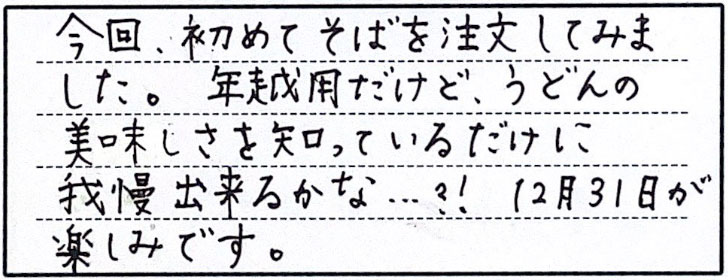 今回、初めてそばを注文してみま
した。 年越用だけど、うどんの
美味しさを知っているだけに
我慢出来るかな…?! 12月31日が
楽しみです。